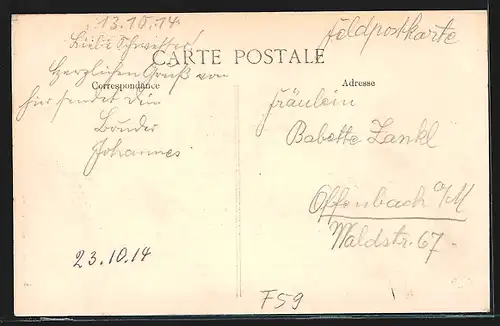 13.10.14
Liebe Schwester!
CARTE POSTALE
Feldpostkarte
Herzlichen Gruß von
Correspondance
Adresse
hier sendet Dein
Bruder
Johannes
Fräulein
Babette Zankl
Offenbach a/M
Waldstr. 67.
23.10.14
F59